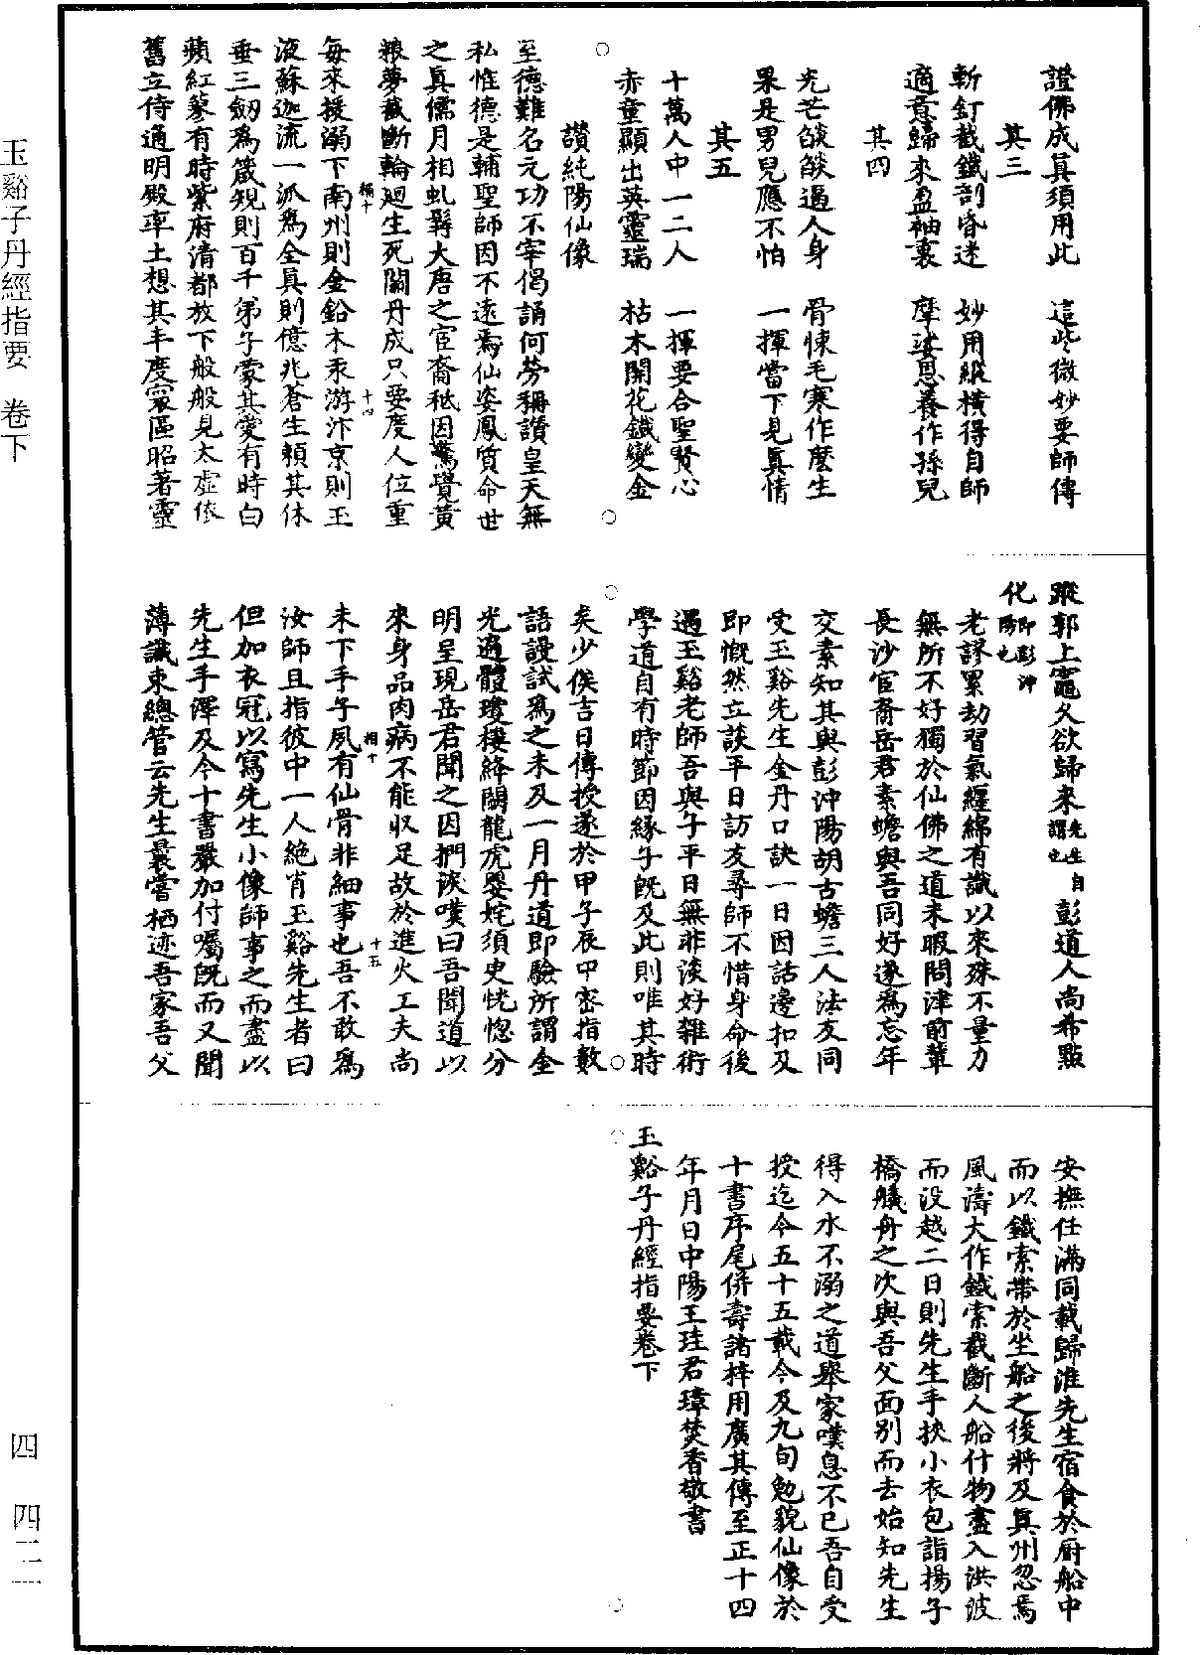 證佛成真須用此　這些微妙要師傳
其三
斬釘截鐵剖昏迷　妙用縱橫得自師
適意歸來盈袖裏　摩挲恩養作孫兒
其四
光芒燄燄逼人身　骨悚毛寒作麼生
果是男兒應不怕　一揮當下見真情
其五
十萬人中一二人　一揮要合聖賢心
赤童顯出英靈瑞　枯木開花鐵變金
讚純陽仙像
至德難名元功不宰偈誦何勞稱讚皇天無
私惟德是輔聖師因不遠焉仙姿鳳質命世
之真儒月相虬髯大唐之宦裔秪因驚覺黃
粮夢截斷輪廻生死關丹成只要度人位重
每來援溺下南州則金鉛木汞游汴京則玉
液蘇迦流一派爲全真則億兆蒼生賴其休
垂三劒爲箴規則百千弟子蒙其愛有時白
蘋紅蓼有時紫府清都放下般般見太虛依
舊立侍通明殿率土想其丰度寰區昭著靈
蹤郭上竈又欲歸來先生自謂也彭道人尚希點
化即彭沖陽也
老謬累劫習氣纏綿有識以來殊不量力
無所不好獨於仙佛之道未暇問津前輩
長沙官裔岳君素蟾與吾同好遂爲忘年
交素知其與彭沖陽胡古蟾三人法友同
受玉谿先生金丹口訣一日因話邊扣及
即慨然立談平日訪友尋師不惜身命後
遇玉谿老師吾與子平日無非淡好雜術
學道自有時節因緣子既及此則唯其時
矣少俟吉日傳授遂於甲子辰甲密指數
語謾試爲之未及一月丹道即驗所謂金
光遍體瓊樓絳闕龍虎嬰姹須臾恍惚分
明呈現岳君聞之因捫淡嘆曰吾聞道以
來身品肉病不能収足故於進火工夫尚
未下手子夙有仙骨非細事也吾不敢爲
汝師且指彼中一人絶肖玉谿先生者曰
但加衣冠以寫先生小像師事之而盡以
先生手澤及今十書嚴加付囑既而又聞
薄識束總管云先生曩嘗栖迹吾家吾父
安撫任滿同載歸淮先生宿食於厨船中
而以鐵索帶於坐船之後將及真州忽焉
風濤大作鐵索截斷人船什物盡入洪波
而没越二日則先生手挾小衣包詣揚子
橋艤舟之次與吾父面别而去始知先生
得入水不溺之道舉家嘆息不已吾自受
授迄今五十五載今及九旬勉貌仙像於
十書序尾併壽諸梓用廣其傳至正十四
年月日中陽王珪君璋焚香敬書
玉谿子丹經指要卷下
稱十
十四
相十
十五
玉谿子丹經指要　卷下
四　四二